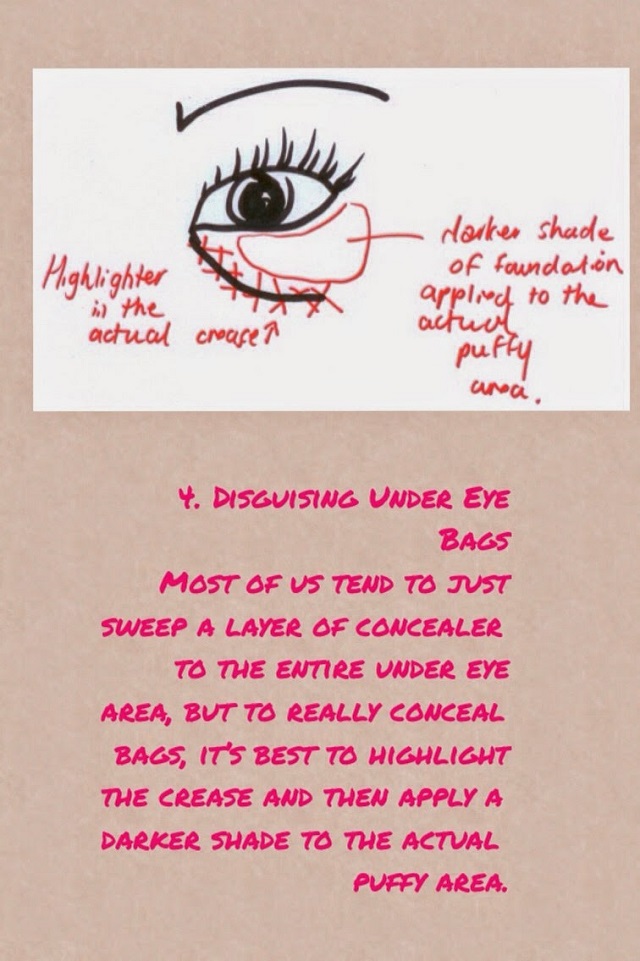 Highlighter
in the
actual crease↑
darker shade
of foundation
applied to the
actual
puffy
area.
4. DISGUISING UNDER EYE
BAGS
MOST OF US TEND TO JUST
SWEEP A LAYER OF CONCEALER
TO THE ENTIRE UNDER EYE
AREA, BUT TO REALLY CONCEAL
BAGS, IT'S BEST TO HIGHLIGHT
THE CREASE AND THEN APPLY A
DARKER SHADE TO THE ACTUAL
PUFFY AREA.